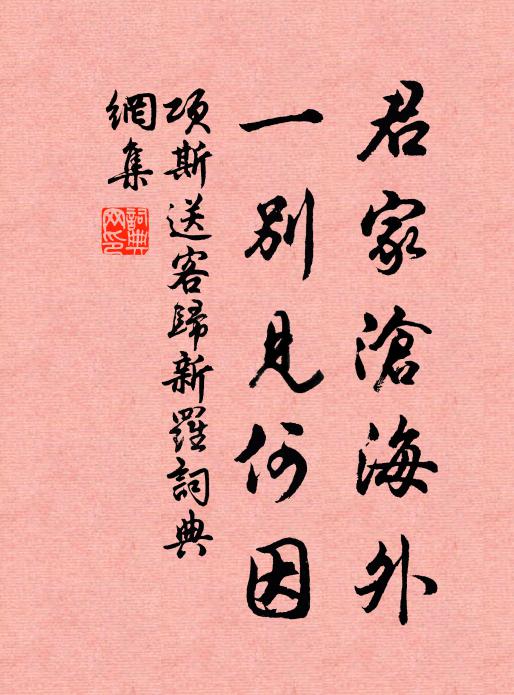 君家滄海外
一別見何因
項斯送客歸新羅詞典
網集
詞典
網印